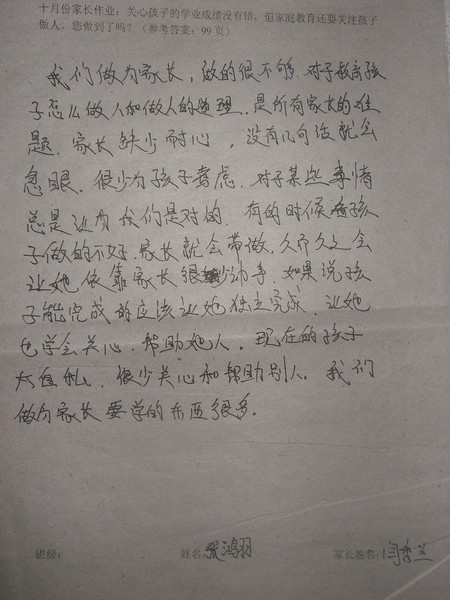 十月份家长作业：关心孩子的学业成绩没有错，但家庭教育还要关注孩子
做人，您做到了吗？（参考答案：99页）
我们做为家长，做的很不够，对于教育孩
子怎么做人和做人的道理，是所有家长的难
题，家长缺少耐心，没有几句话就会
急眼，很少为孩子考虑，对于某些事情
总是认为我们是对的，有的时候孩
子做的不好，家长就会带做，久而久之会
让她依靠家长很少动手，如果说孩
子能完成的应该让她独立完成，让她
也学会关心，帮助她人，现在的孩子
太自私，很少关心和帮助别人，我们
做为家长要学的东西很多。
班级： 姓名：张鸿羽 家长姓名：闫秀兰